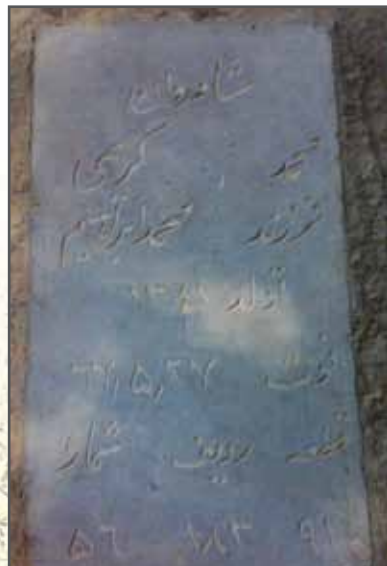 شادروان
محمد کرمی
فرزند محمدابراهیم
تولد
فوت ۶۶٫۵٫۲۷
قطعه ردیف شماره
۹۱ ۸۸۳ ۵۶